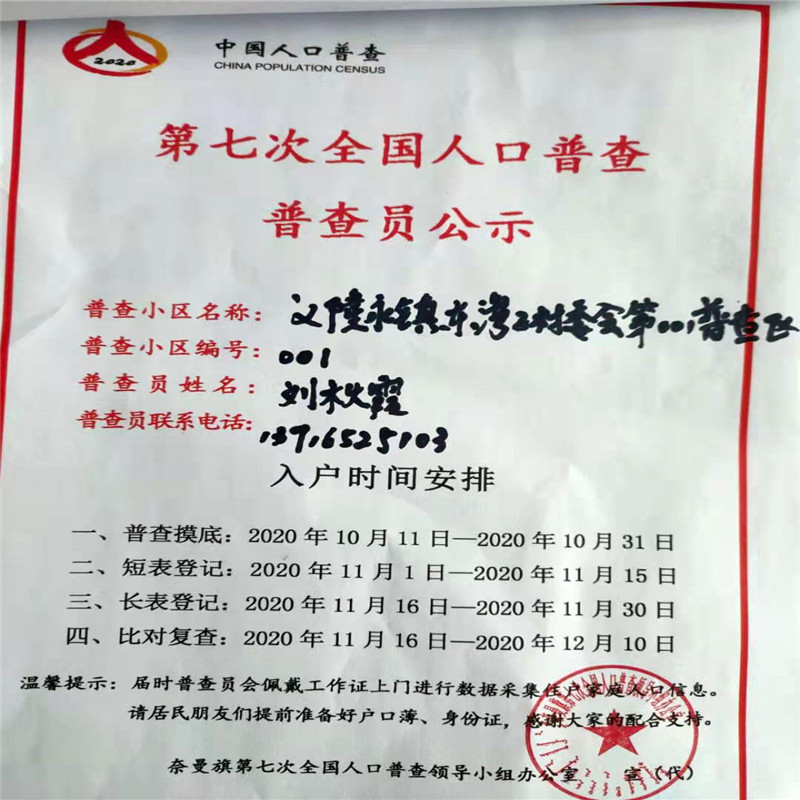 2020
中国人口普查
CHINA POPULATION CENSUS
第七次全国人口普查
普查员公示
普查小区名称：义隆永镇东湾子村委会第001普查区
普查小区编号：001
普查员姓名：刘秋霞
普查员联系电话：13716525103
入户时间安排
一、普查摸底：2020 年 10 月 11 日—2020 年 10 月 31 日
二、短表登记：2020 年 11 月 1 日—2020 年 11 月 15 日
三、长表登记：2020 年 11 月 16 日—2020 年 11 月 30 日
四、比对复查：2020 年 11 月 16 日—2020 年 12 月 10 日
温馨提示：届时普查员会佩戴工作证上门进行数据采集住户家庭人口信息。
请居民朋友们提前准备好户口薄、身份证，感谢大家的配合支持。
奈曼旗第七次全国人口普查领导小组办公室 宣（代）